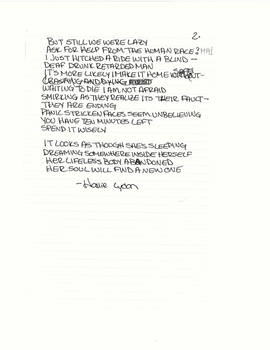 2.
BUT STILL WE WERE LAZY
ASK FOR HELP FROM THE HUMAN RACE? HA!
I JUST HITCHED A RIDE WITH A BLIND -
DEAF DRUNK RETARDED MAN
IT'S MORE LIKELY I MAKE IT HOME WITHOUT -
CRASHING AND DYING
WAITING TO DIE I AM NOT AFRAID
SMIRKING AS THEY REALIZE ITS THEIR FAULT -
THEY ARE ENDING
PANIC STRICKEN FACES SEEM UNBELIEVING
YOU HAVE TEN MINUTES LEFT
SPEND IT WISELY
IT LOOKS AS THOUGH SHE'S SLEEPING
DREAMING SOMEWHERE INSIDE HERSELF
HER LIFELESS BODY ABANDONED
HER SOUL WILL FIND A NEW ONE